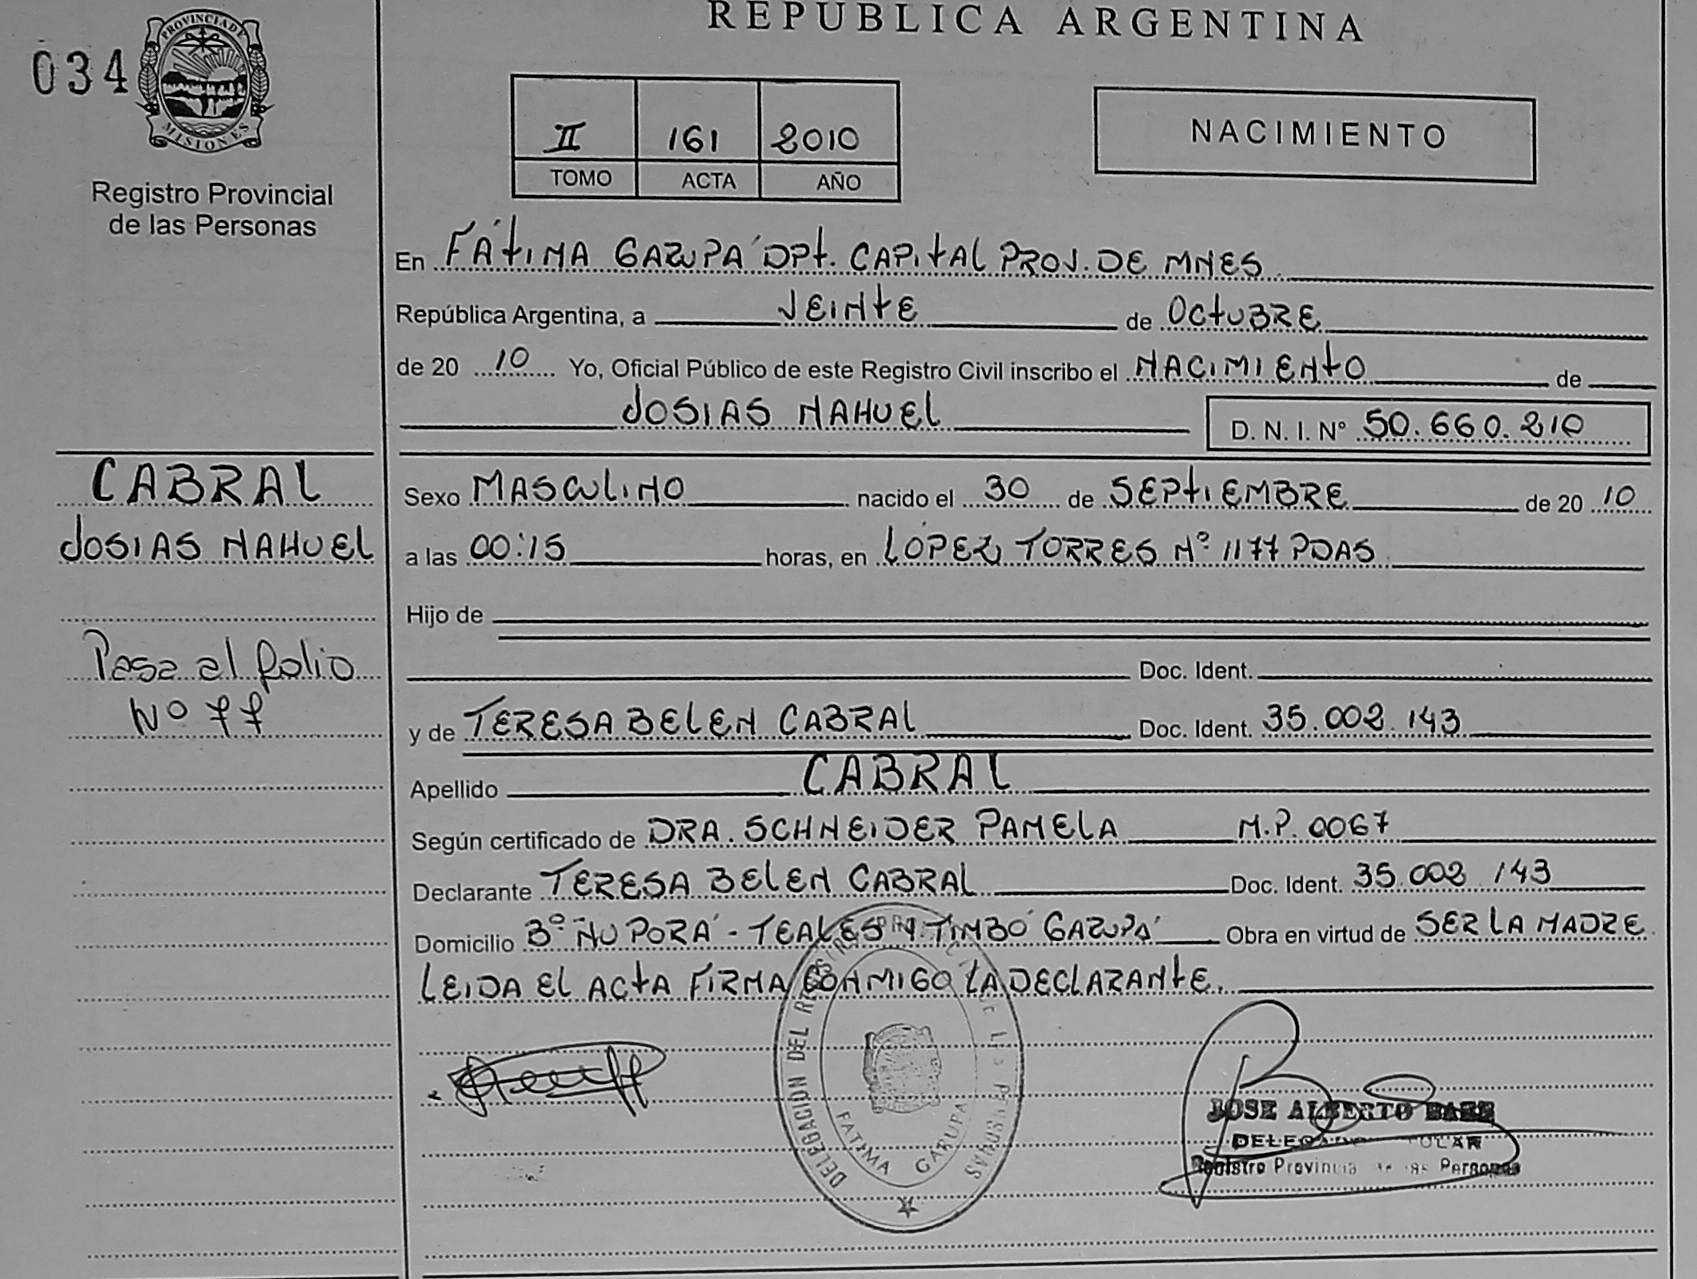 REPUBLICA ARGENTINA
034
PROVINCIA DE
MISIONES
Registro Provincial
de las Personas
II 161 2010
TOMO ACTA AÑO
NACIMIENTO
En FÁTIMA GARUPÁ DPT. CAPITAL PROV. DE MNES
República Argentina, a VEINTE de OCTUBRE
de 20 10 Yo, Oficial Público de este Registro Civil inscribo el NACIMIENTO de
JOSIAS NAHUEL D. N. I. N° 50.660.210
CABRAL
JOSIAS NAHUEL
Pasa al folio
Nº 77
Sexo MASCULINO nacido el 30 de SEPTIEMBRE de 20 10
a las 00:15 horas, en LÓPEZ TORRES Nº 1177 PDAS
Hijo de
Doc. Ident.
y de TERESA BELEN CABRAL Doc. Ident. 35.002.143
Apellido CABRAL
Según certificado de DRA. SCHNEIDER PAMELA M.P. 0067
Declarante TERESA BELEN CABRAL Doc. Ident. 35.002.143
Domicilio Bº ÑU PORÁ - TIMBÓ GARUPÁ Obra en virtud de SER LA MADRE
LEIDA EL ACTA FIRMA CONMIGO LA DECLARANTE.
DELEGACION DEL PERSONAS
FATIMA GARUPA
JOSE ALBERTO
Registro Provincial de las Personas